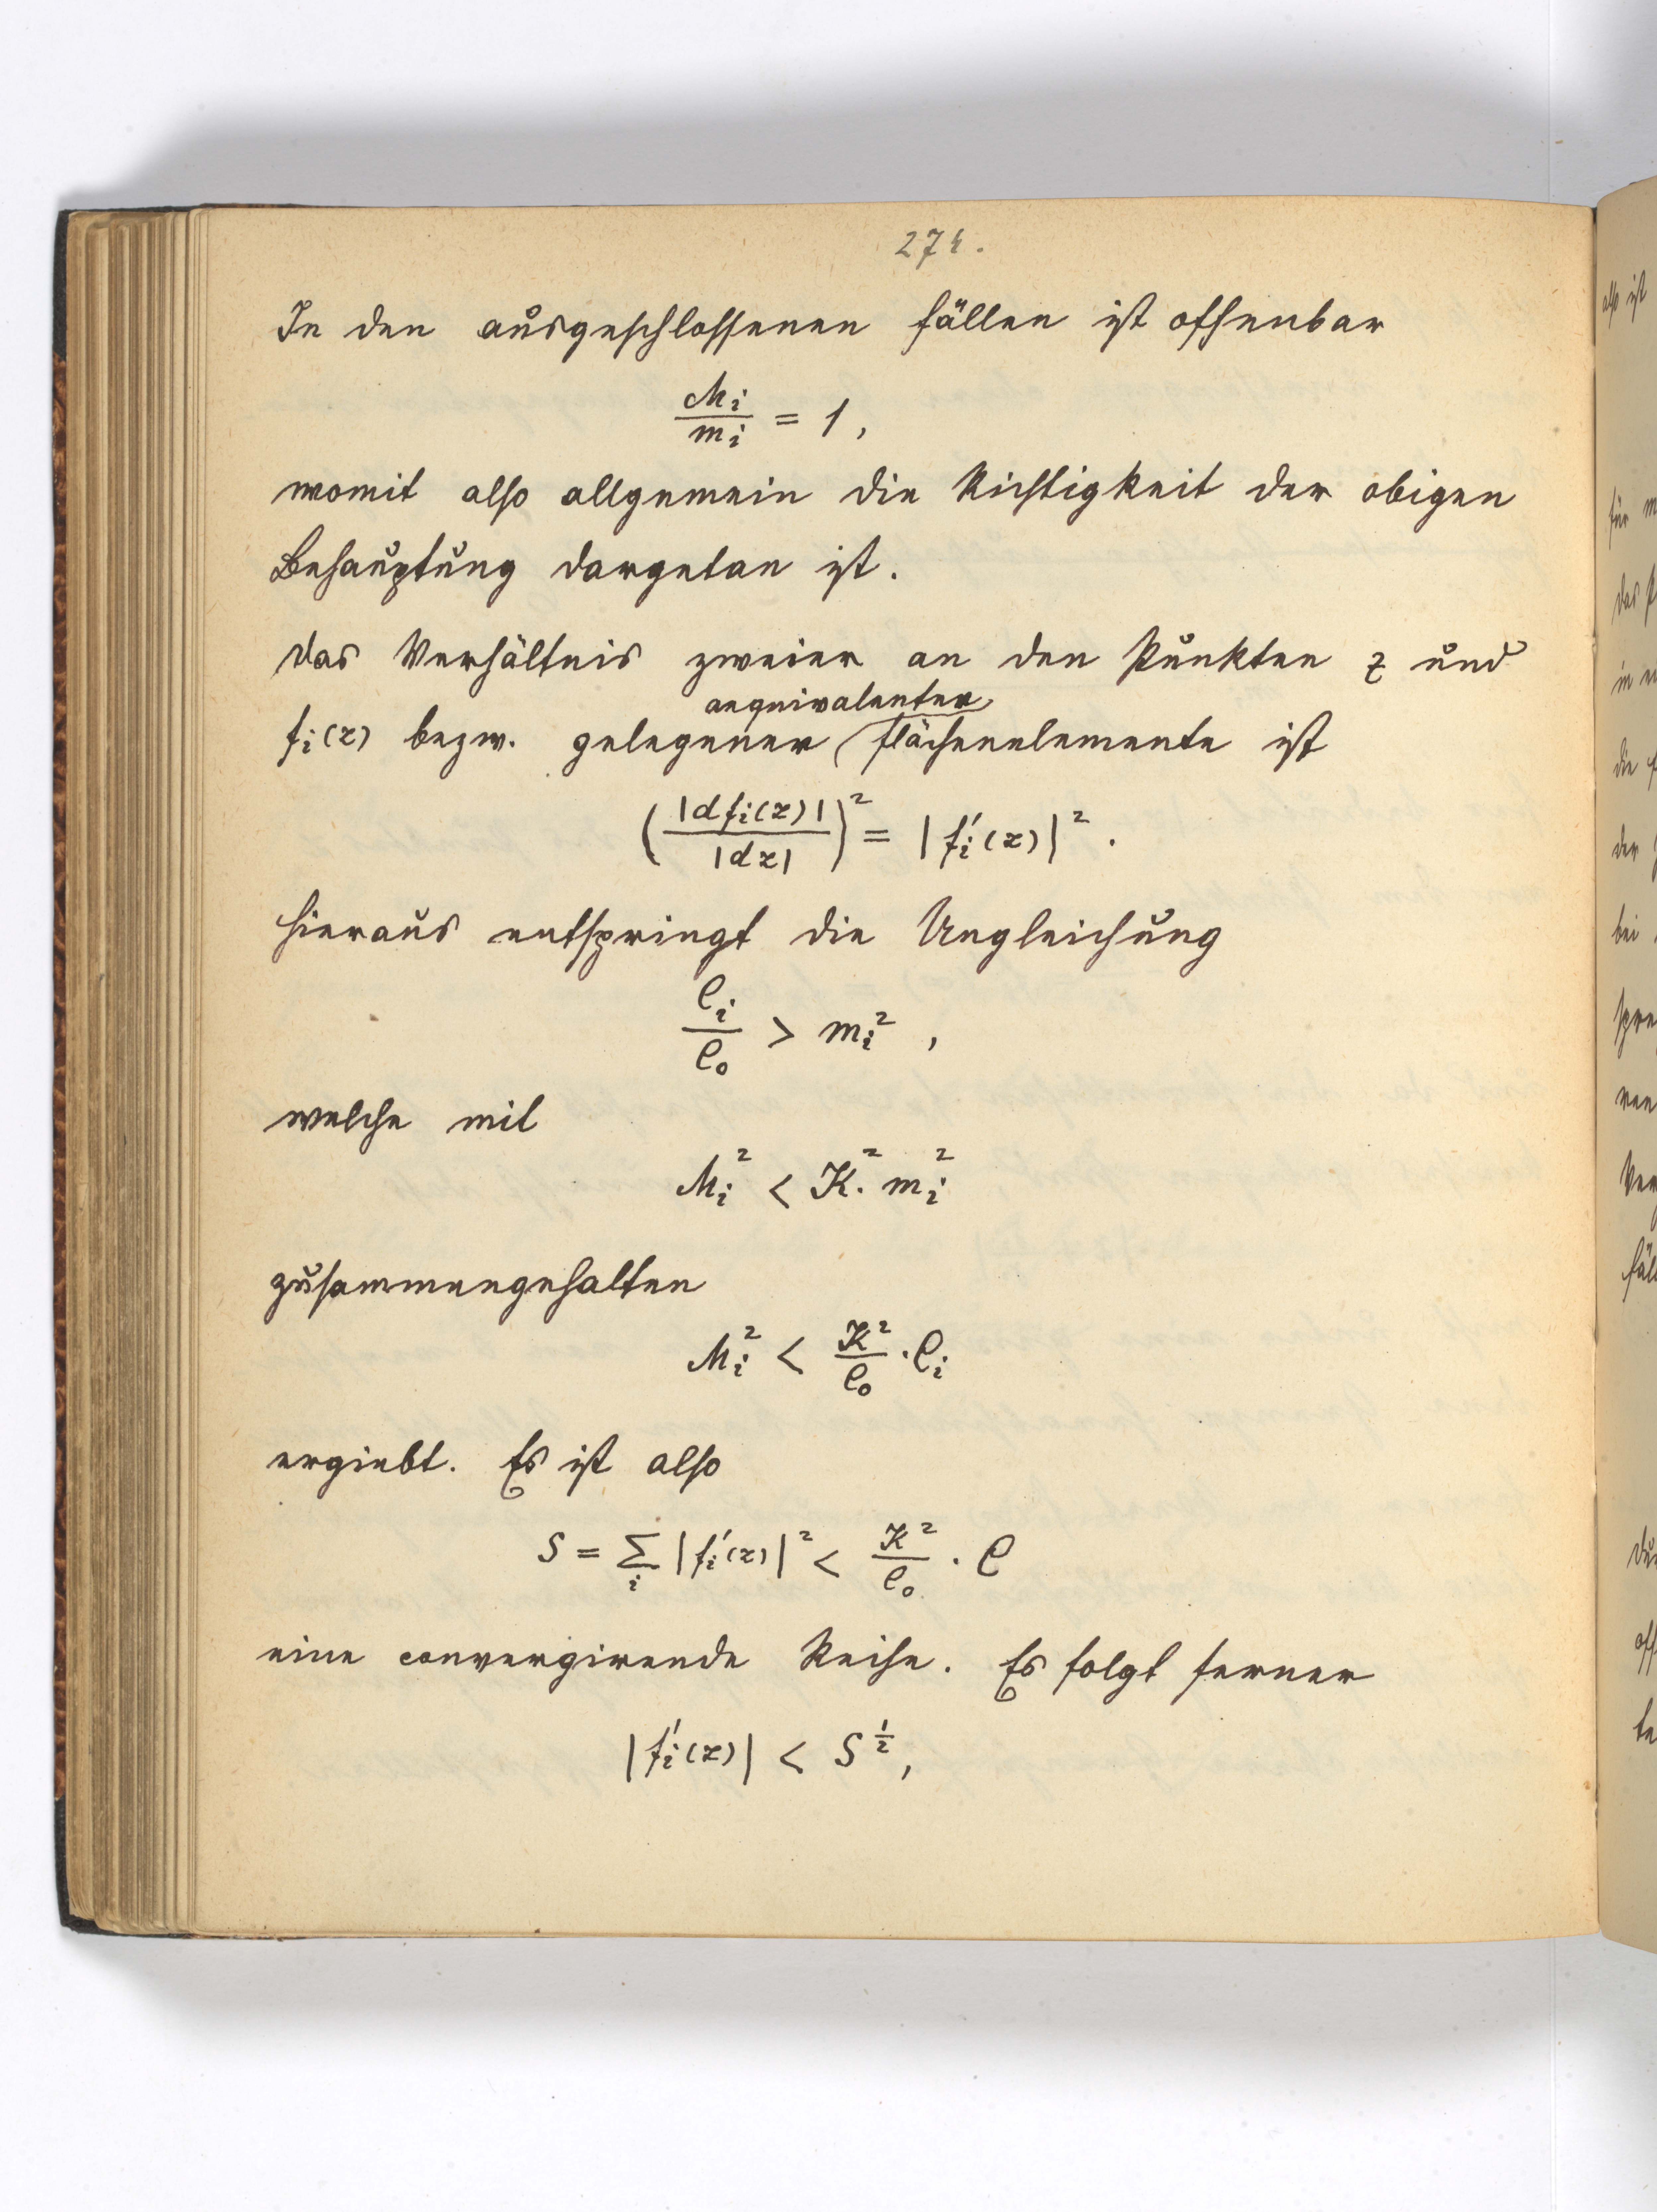 274.
In den ausgeschlossenen Fällen ist offenbar
M_i / m_i = 1 ,
womit also allgemein die Richtigkeit der obigen
Behauptung dargetan ist.
Das Verhältnis zweier an den Punkten z und
aequivalenter
f_i(z) bezw. gelegener Flächenelemente ist
( |df_i(z)| / |dz| )² = |f_i'(z)|² .
Hieraus entspringt die Ungleichung
ℓ_i / ℓ_0 > m_i² ,
welche mit
M_i² < K² · m_i²
zusammengehalten
M_i² < K² / ℓ_0 · ℓ_i
ergiebt. Es ist also
S = Σ_i |f_i'(z)|² < K² / ℓ_0 · ℓ
eine convergirende Reihe. Es folgt ferner
|f_i'(z)| < S^{1/2} ,
also ist
für
das
in
die
der
bei
Fäl